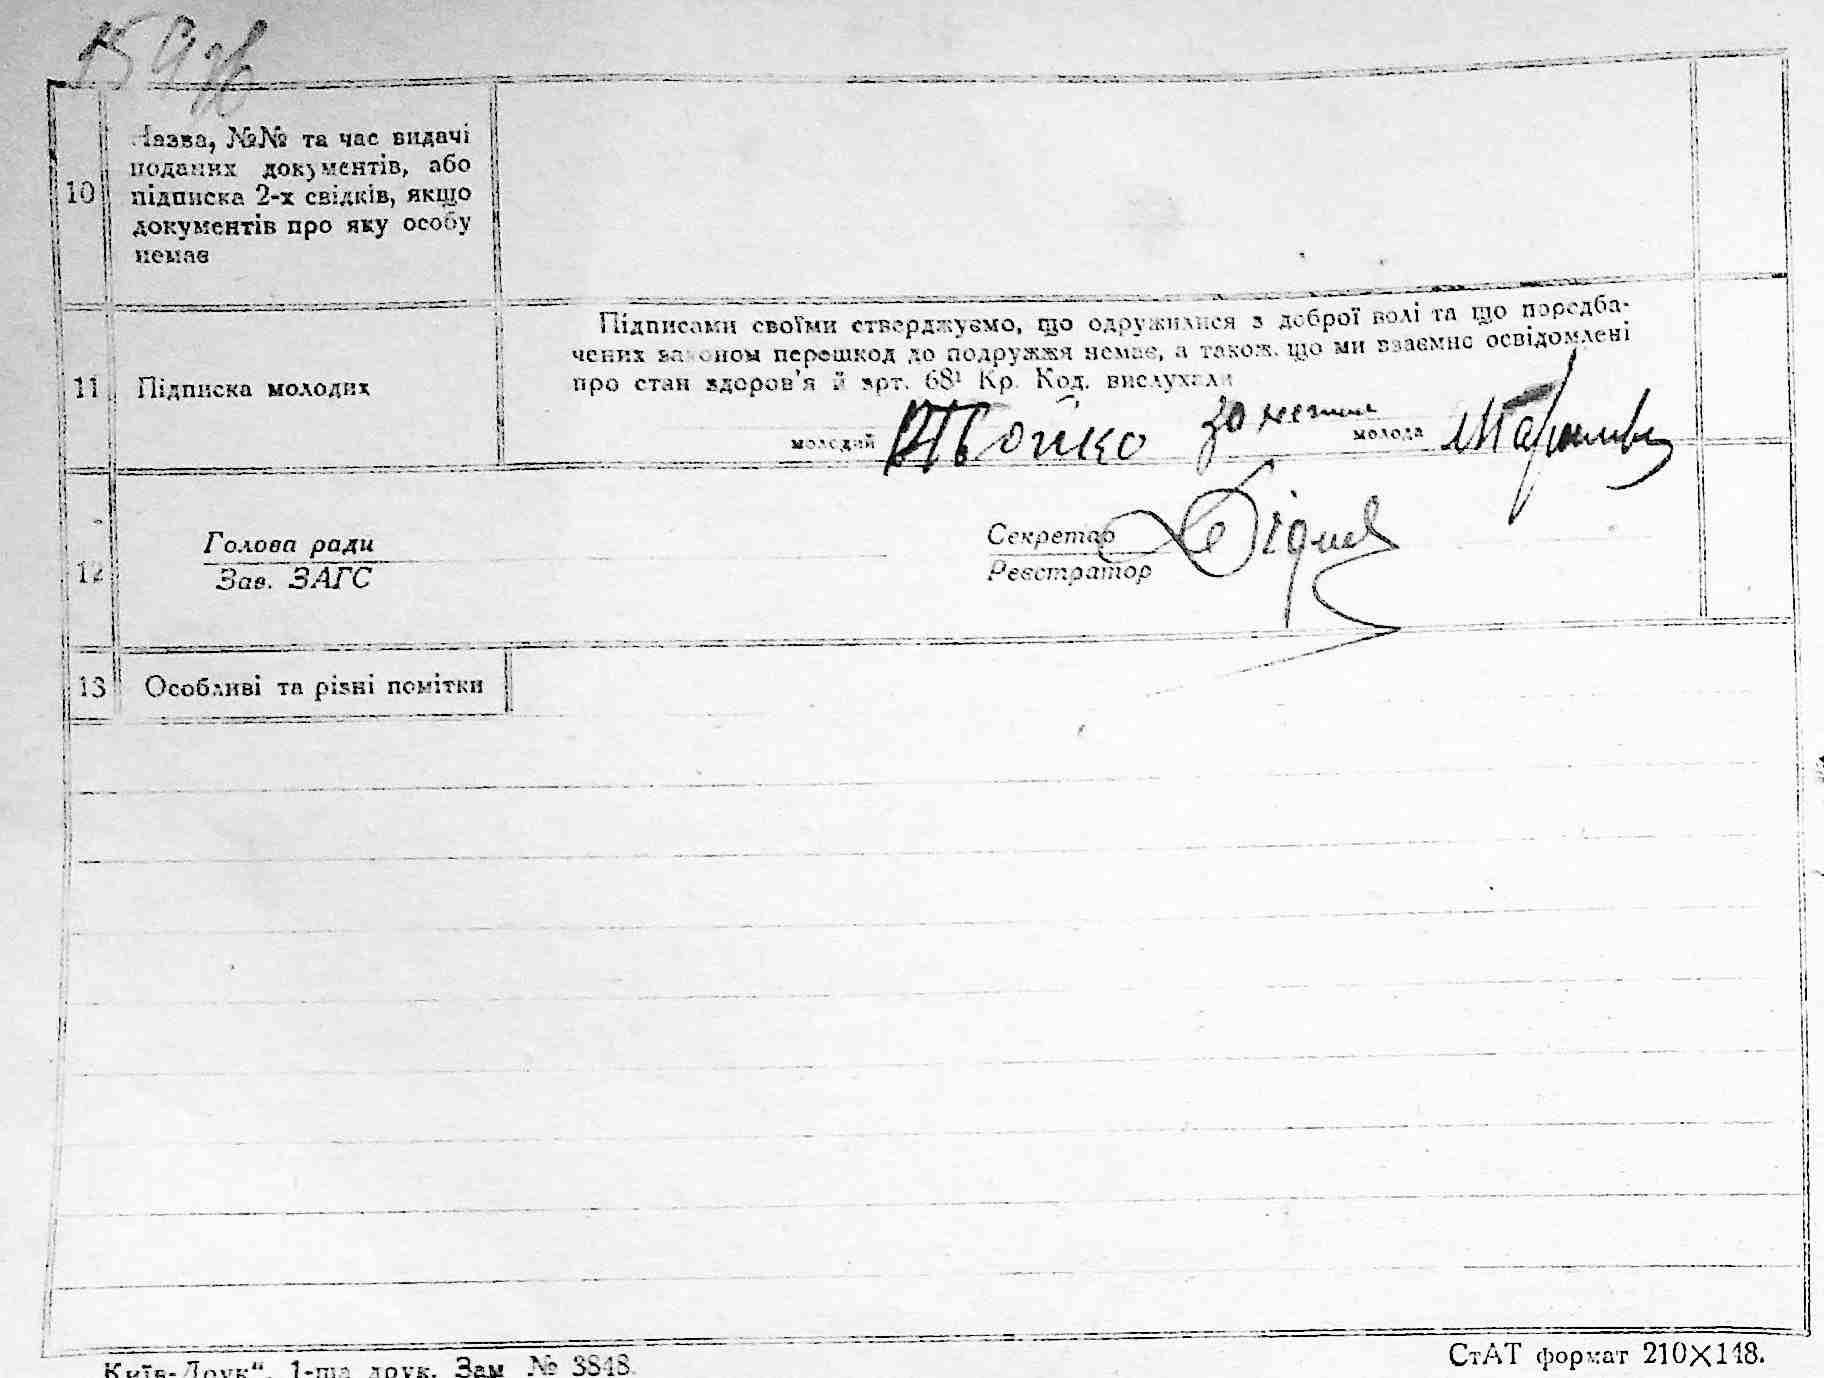 159 зв
10
Назва, №№ та час видачі
поданих документів, або
підписка 2-х свідків, якщо
документів про яку особу
немає
11
Підписка молодих
Підписами своїми стверджуємо, що одружилися з доброї волі та що поредба-
чених законом перешкод до подружжя немає, а також, що ми взаємно освідомлені
про стан здоров'я й арт. 68¹ Кр. Код. вислухали
молодий Бойко за неписм. молода
12
Голова ради
Зав. ЗАГС
Секретар
Реєстратор
13
Особливі та різні помітки
Київ-Друк“, 1-ша друк. Зам № 3848.
СтАТ формат 210×148.